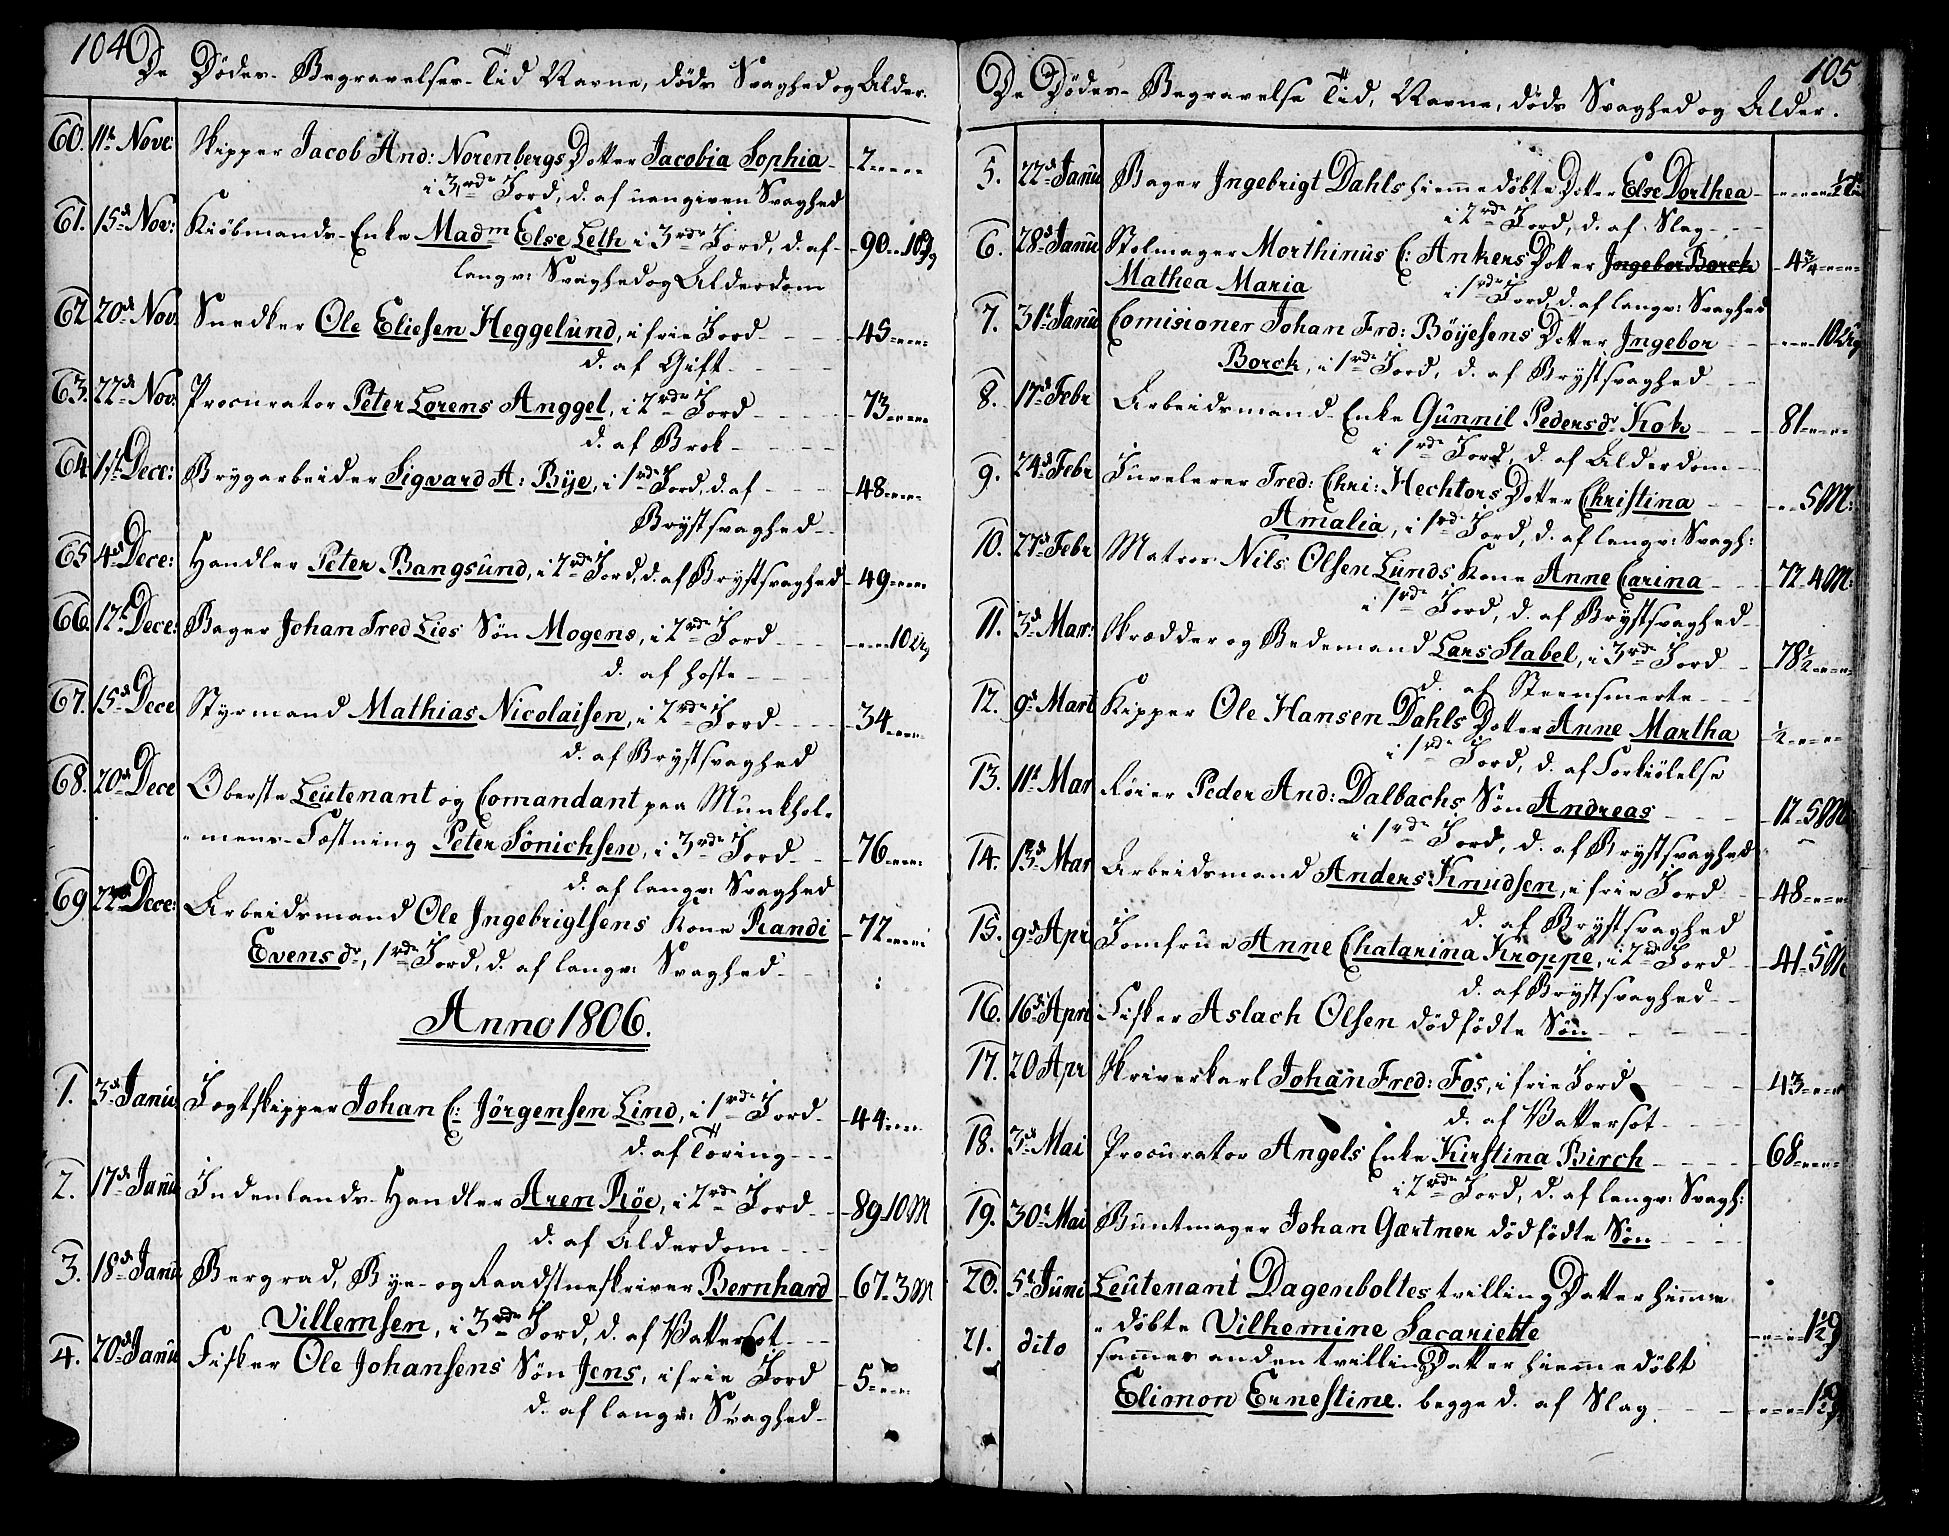 104
De Dødes Begravelses Tid Navne, døds Svaghed og Alder.
60. 11t Nove: Skipper Jacob And: Norenbergs Dotter Jacobia Sophia 2
i 3rde Jord, d. af uangiven Svaghed
61. 15d Nov: Kiøbmands Enke Madm Else Leth i 3rde Jord, d. af 90
langv: Svaghed og Alderdom
62 20d Nov. Snedker Ole Eliesen Heggelund, i frie Jord 45
d. af Gift
63. 22d Nov. Procurator Peter Lorens Anggel, i 2rde Jord 73
d. af Brok
64. 1st Dece: Brygarbeider Sigvard A: Bÿe, i 1rde Jord, d. af 48
Brÿstsvaghed
65 4d Dece: Handler Peter Bangsund, i 2rde Jord, d. af Brÿstsvaghed 49
66. 12t Dece: Bager Johan Fred Lies Søn Mogens, i 2rde Jord 10 Ug
d. af Hoste
67. 15d Dece Styrmand Mathias Nicolaisen, i 2rde Jord 34
d. af Brÿstsvaghed
68. 20d Dece Oberste Leutenant og Comandant paa Munkhol-
mens Fæstning Peter Sönichsen, i 3rde Jord 76
d. af langv: Svaghed
69 22d Dece: Arbeidsmand Ole Ingebrigtsens Kone Randi 72
Evensdr, 1rde Jord, d. af langv: Svaghed
Anno 1806.
1. 3d Janu. Jogtskipper Johan C: Jörgensen Lind, i 1rde Jord 44
d. af Tæring
2. 17d Janu Indenlands Handler Aren Röe, i 2rde Jord 89 10 M
d. af Alderdom
3. 18d Janu Bergrad, Bye- og Raadstueskriver Bernhard 67 3 M
Villemsen, i 3rde Jord, d. af Vattersot
4. 20d Janu Fisker Ole Johansens Søn Jens, i frie Jord 5
d. af langv: Svaghed
105
De Dødes Begravelse Tid, Navne, døds Svaghed og Alder.
5. 22d Janu Bager Ingebrigt Dahls hiemmedøbte Dotter Else Dorthea
i 2rde Jord, d. af Slag
6. 28d Janu Stolmager Morthinus C: Ankers Dotter Ingebor Borch 4 3/4
Mathea Maria i 1rde Jord, d. af langv: Svaghed
7. 31t Janu Comisioner Johan Frd: Böÿesens Dotter Ingebor 10 Ug
Borch, i 1rde Jord, d. af Brÿstsvaghed
8. 17d Febr Arbeidsmand Enke Gunnil Pedersdr Kok 81
i 1rde Jord, d. af Alderdom
9. 24d Febr Juvelerer Fred: Chri: Hechtors Dotter Christina 5 M:
Amalia, i 1rde Jord, d. af langv: Svagh:
10. 27d Febr Matros Nils Olsen Lunds Kone Anne Carina 72 4 M:
i 1rde Jord, d. af Brÿstsvaghed
11. 3d Mar: Skrædder og Bedemand Lars Stabel, i 3rde Jord 78 1/2
d. af Steensmerte
12. 9d Mart Skipper Ole Hansen Dahls Dotter Anne Martha 1/2
i 1rde Jord, d. af Forkiølelse
13. 11t Mar Røier Peder And: Dalbachs Søn Andreas 12 5 M
i 1rde Jord, d. af Brÿstsvaghed
14. 13d Mar Arbeidsmand Anders Knudsen, i frie Jord 48
d. af Brÿstsvaghed
15. 9d Apr Jomfrue Anne Chatarina Kroppe, i 2rde Jord 41 5 M
d. af Brÿstsvaghed
16. 16d Apri Fisker Aslach Olsen dødfødte Søn
17. 20 Apr Skriverkarl Johan Fred: Fos, i frie Jord 43
d. af Vattersot
18. 3d Mai Procurator Angels Enke Kirstina Birch 68
i 2rde Jord, d. af langv: Svagh:
19. 30t Mai Buntmager Johan Gærtner dødfødte Søn
20. 5t Juni Leutenant Dagenboltes tvilling Datter hiemme
døbte Vilhemine Sacariette
21. dito sammes anden tvilling Datter hiemmedøbt
Elimon Ernestine. begge d. af Slag